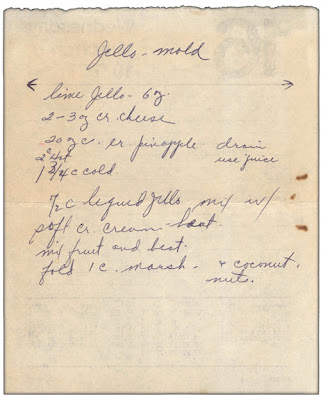 Jello - mold
lime Jello - 6 oz.
2-3 oz cr. cheese
20 oz c. cr. pineapple drain
use juice
1 3/4 c cold
1/2 c liquid Jello mix w/
soft cr. cream beat.
mix fruit and beat.
fold 1 c. marsh - & coconut.
nuts.